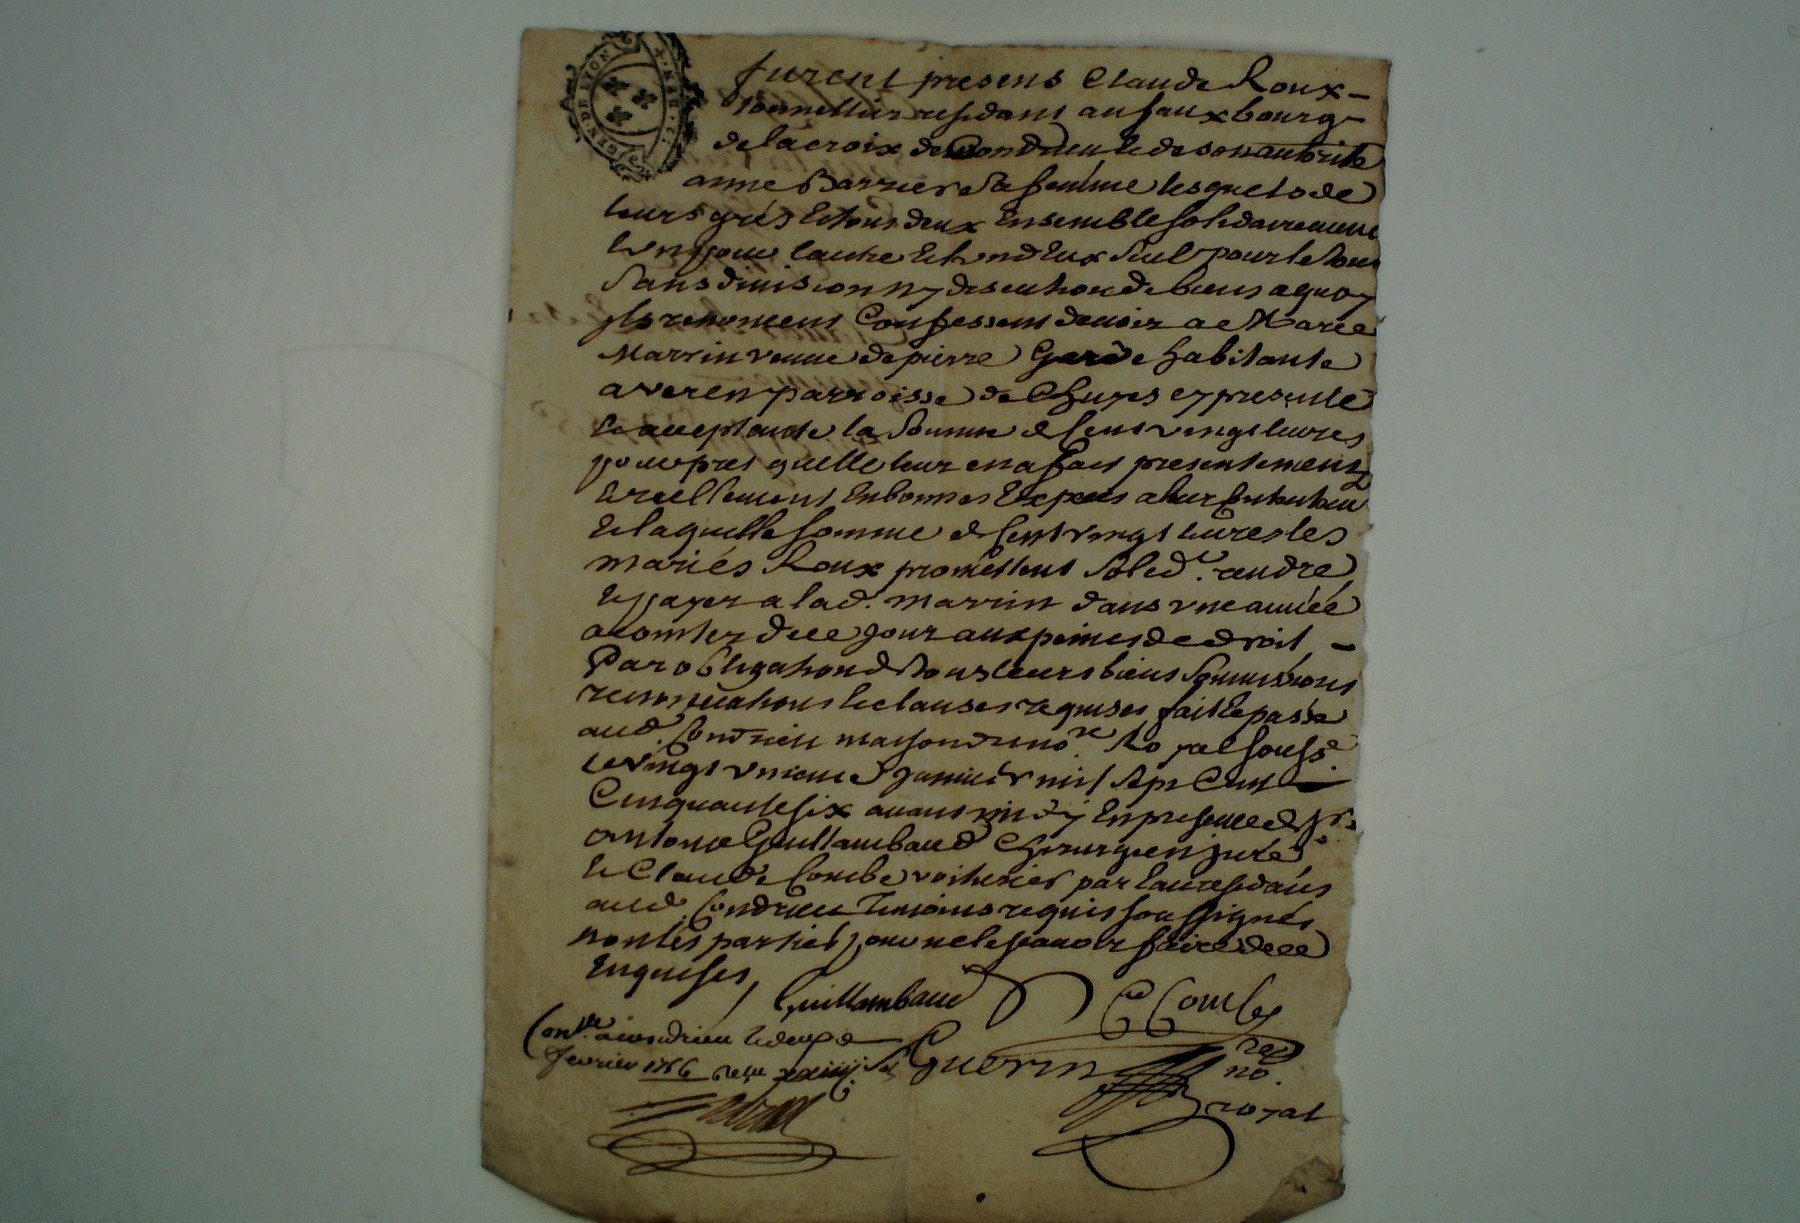 GEN·DE LYON
furent presens Claude Roux
tonnellier residant au fauxbourg
de lacroix de Condrieu & de son autorité
anne Barrier sa femme lesquels de
leurs grés & tous deux Ensemble solidairement
lun pour lautre & lun deux seul pour le tout
sans division ny discution de biens a quoy
jls renoncent Confessent devoir a Marie
Marrin veuve de pierre habitante
a veren parroisse de Chuyes cy presente
& acceptante la somme de Cent vingt livres
pour pret quelle leur en a fait presentement
& reellement En bonnes Espèces a leur Contentement
& laquelle somme de Cent vingt livres les
mariés Roux promettent solid.t randre
& payer a lad. marrin dans une année
a comter de ce jour aux peines de droit
Par obligation de tous leurs biens soumissions
renonciations & clauses requises fait & passé
aud. Condrieu maison du no.re Royal souss.é
le vingt unieme janvier mil sept Cent
Cinquante six avant midy En presence de sr.
antoine Guillambaud Chirurgien juré
& Claude Combe voiturier par Eau residants
aud. Condrieu Temoins requis soussignés
non les parties pour ne le scavoir faire de ce
Enquises,
Guillambaud C Combe
Con.lé a condrieu le deux
fevrier 1756 Guerin
no.
royal